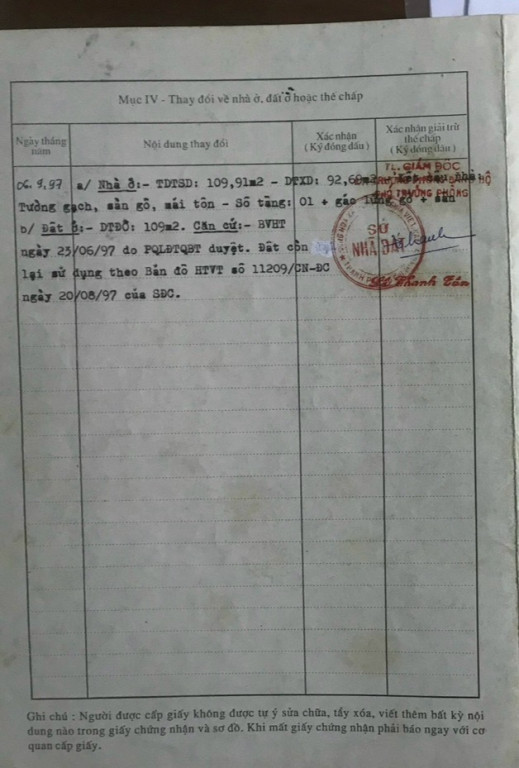 Mục IV - Thay đổi về nhà ở, đất ở hoặc thế chấp
Ngày tháng năm
Nội dung thay đổi
Xác nhận
( Ký đóng dấu )
Xác nhận giải trừ
thế chấp
( Ký đóng dấu )
TL. GIÁM ĐỐC
PHÓ TRƯỞNG PHÒNG
06.9.97 a/ Nhà ở:- TDTSD: 109,91m2 - DTXD: 92,60m2
Tường gạch, sàn gỗ, mái tôn - Số tầng: 01 + gác lửng gỗ + sân
b/ Đất ở:- DTĐỞ: 109m2. Căn cứ:- BVHT
ngày 25/06/97 do PQLĐTQBT duyệt. Đất còn
lại sử dụng theo Bản đồ HTVT số 11209/CN-ĐC
ngày 20/08/97 của SĐC.
SỞ
NHÀ ĐẤT
Ghi chú : Người được cấp giấy không được tự ý sửa chữa, tẩy xóa, viết thêm bất kỳ nội
dung nào trong giấy chứng nhận và sơ đồ. Khi mất giấy chứng nhận phải báo ngay với cơ
quan cấp giấy.